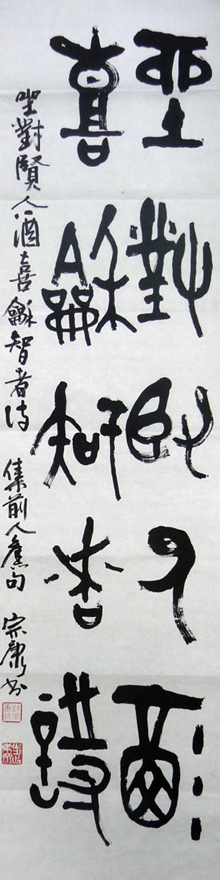 坐對臤人酒
喜龢知者詩
坐對賢人酒喜龢智者詩 集前人舊句 宗康書